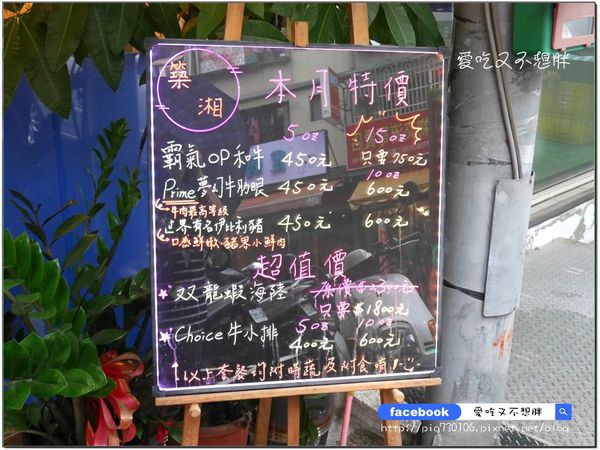 愛吃又不想胖
築湘
本月特價
5oz 15oz
霸氣OP和牛 450元 只要750元
10oz
Prime夢幻牛肋眼 450元 600元
牛肉最高等級
世界有名伊比利豬 450元 600元
口感鮮嫩、豬界小鮮肉
超值價
原價$2300元
双龍蝦海陸 只要$1800元
5oz 10oz
Choice牛小排 400元 600元
以上套餐均附時蔬及附食前!
facebook 愛吃又不想胖
http://pig730106.pixnet.net/blog